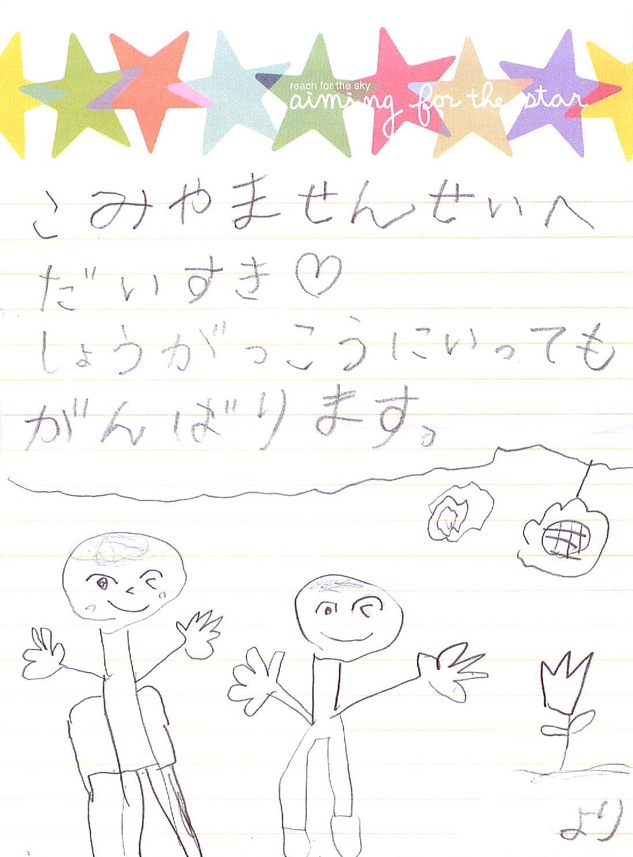 reach for the sky
aiming for the star
こみやませんせいへ
だいすき♡
しょうがっこうにいっても
がんばります。
より